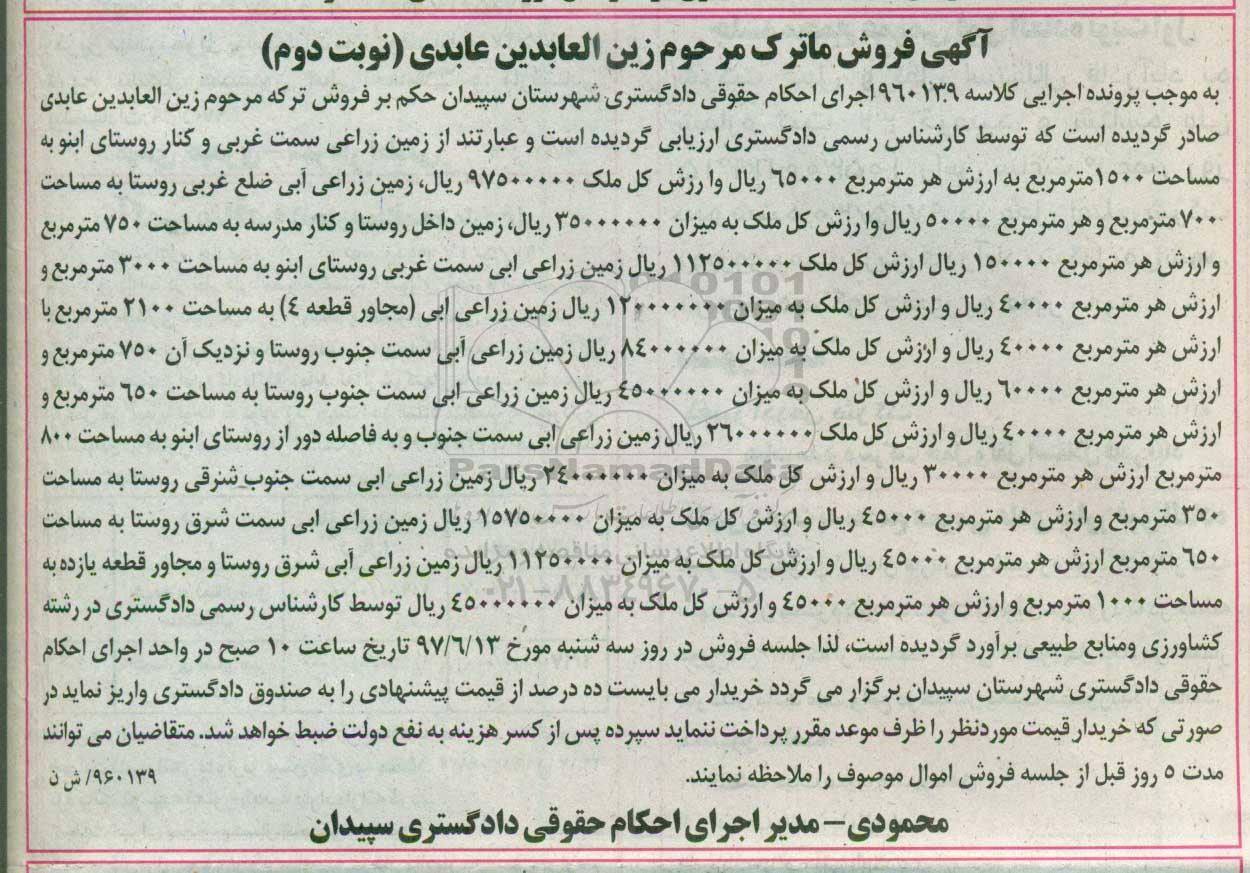 آگهی فروش ماترک مرحوم زین العابدین عابدی (نوبت دوم)
به موجب پرونده اجرایی کلاسه ۹۶۰۱۳۹اجرای احکام حقوقی دادگستری شهرستان سپیدان حکم بر فروش ترکه مرحوم زین العابدین عابدی
صادر گردیده است که توسط کارشناس رسمی دادگستری ارزیابی گردیده است و عبارتند از زمین زراعی سمت غربی و کنار روستای ابنو به
مساحت ۱۵۰۰مترمربع به ارزش هر مترمربع ۶۵۰۰۰ ریال وا رزش کل ملک ۹۷۵۰۰۰۰۰ ریال، زمین زراعی آبی ضلع غربی روستا به مساحت
۷۰۰ مترمربع و هر مترمربع ۵۰۰۰۰ ریال وا رزش کل ملک به میزان ۳۵۰۰۰۰۰۰ ریال، زمین داخل روستا و کنار مدرسه به مساحت ۷۵۰ مترمربع
و ارزش هر مترمربع ۱۵۰۰۰۰ ریال ارزش کل ملک ۱۱۲۵۰۰۰۰۰ ریال زمین زراعی ابی سمت غربی روستای ابنو به مساحت ۳۰۰۰ مترمربع و
ارزش هر مترمربع ۴۰۰۰۰ ریال و ارزش کل ملک به میزان ۱۲۰۰۰۰۰۰۰ ریال زمین زراعی ابی (مجاور قطعه ٤) به مساحت ۲۱۰۰ مترمربع با
ارزش هر مترمربع ۴۰۰۰۰ ریال و ارزش کل ملک به میزان ۸۴۰۰۰۰۰۰ ریال زمین زراعی آبی سمت جنوب روستا و نزدیک آن ۷۵۰ مترمربع و
ارزش هر مترمربع ۶۰۰۰۰ ریال و ارزش کل ملک به میزان ۴۵۰۰۰۰۰۰ ریال زمین زراعی ابی سمت جنوب روستا به مساحت ۶۵۰ مترمربع و
ارزش هر مترمربع ۴۰۰۰۰ ریال و ارزش کل ملک ۲۶۰۰۰۰۰۰ ریال زمین زراعی ابی سمت جنوب و به فاصله دور از روستای ابنو به مساحت ۸۰۰
مترمربع ارزش هر مترمربع ۳۰۰۰۰ ریال و ارزش کل ملک به میزان ۲۴۰۰۰۰۰۰ ریال زمین زراعی ابی سمت جنوب شرقی روستا به مساحت
۳۵۰ مترمربع و ارزش هر مترمربع ۴۵۰۰۰ ریال و ارزش کل ملک به میزان ۱۵۷۵۰۰۰۰ ریال زمین زراعی ابی سمت شرق روستا به مساحت
۶۵۰ مترمربع ارزش هر مترمربع ۴۵۰۰۰ ریال و ارزش کل ملک به میزان ۱۱۲۵۰۰۰۰ ریال زمین زراعی آبی شرق روستا و مجاور قطعه یازده به
مساحت ۱۰۰۰ مترمربع و ارزش هر مترمربع ۴۵۰۰۰ و ارزش کل ملک به میزان ۴۵۰۰۰۰۰۰ ریال توسط کارشناس رسمی دادگستری در رشته
کشاورزی ومنابع طبیعی برآورد گردیده است، لذا جلسه فروش در روز سه شنبه مورخ ۹۷/۶/۱۳ تاریخ ساعت ۱۰ صبح در واحد اجرای احکام
حقوقی دادگستری شهرستان سپیدان برگزار می گردد خریدار می بایست ده درصد از قیمت پیشنهادی را به صندوق دادگستری واریز نماید در
صورتی که خریدار قیمت موردنظر را ظرف موعد مقرر پرداخت ننماید سپرده پس از کسر هزینه به نفع دولت ضبط خواهد شد. متقاضیان می توانند
مدت ۵ روز قبل از جلسه فروش اموال موصوف را ملاحظه نمایند.
۹۶۰۱۳۹/ ش ن
محمودی- مدیر اجرای احکام حقوقی دادگستری سپیدان
ParsNamadData
۰۲۱-۸۸۳۴۹۶۷۰-۵